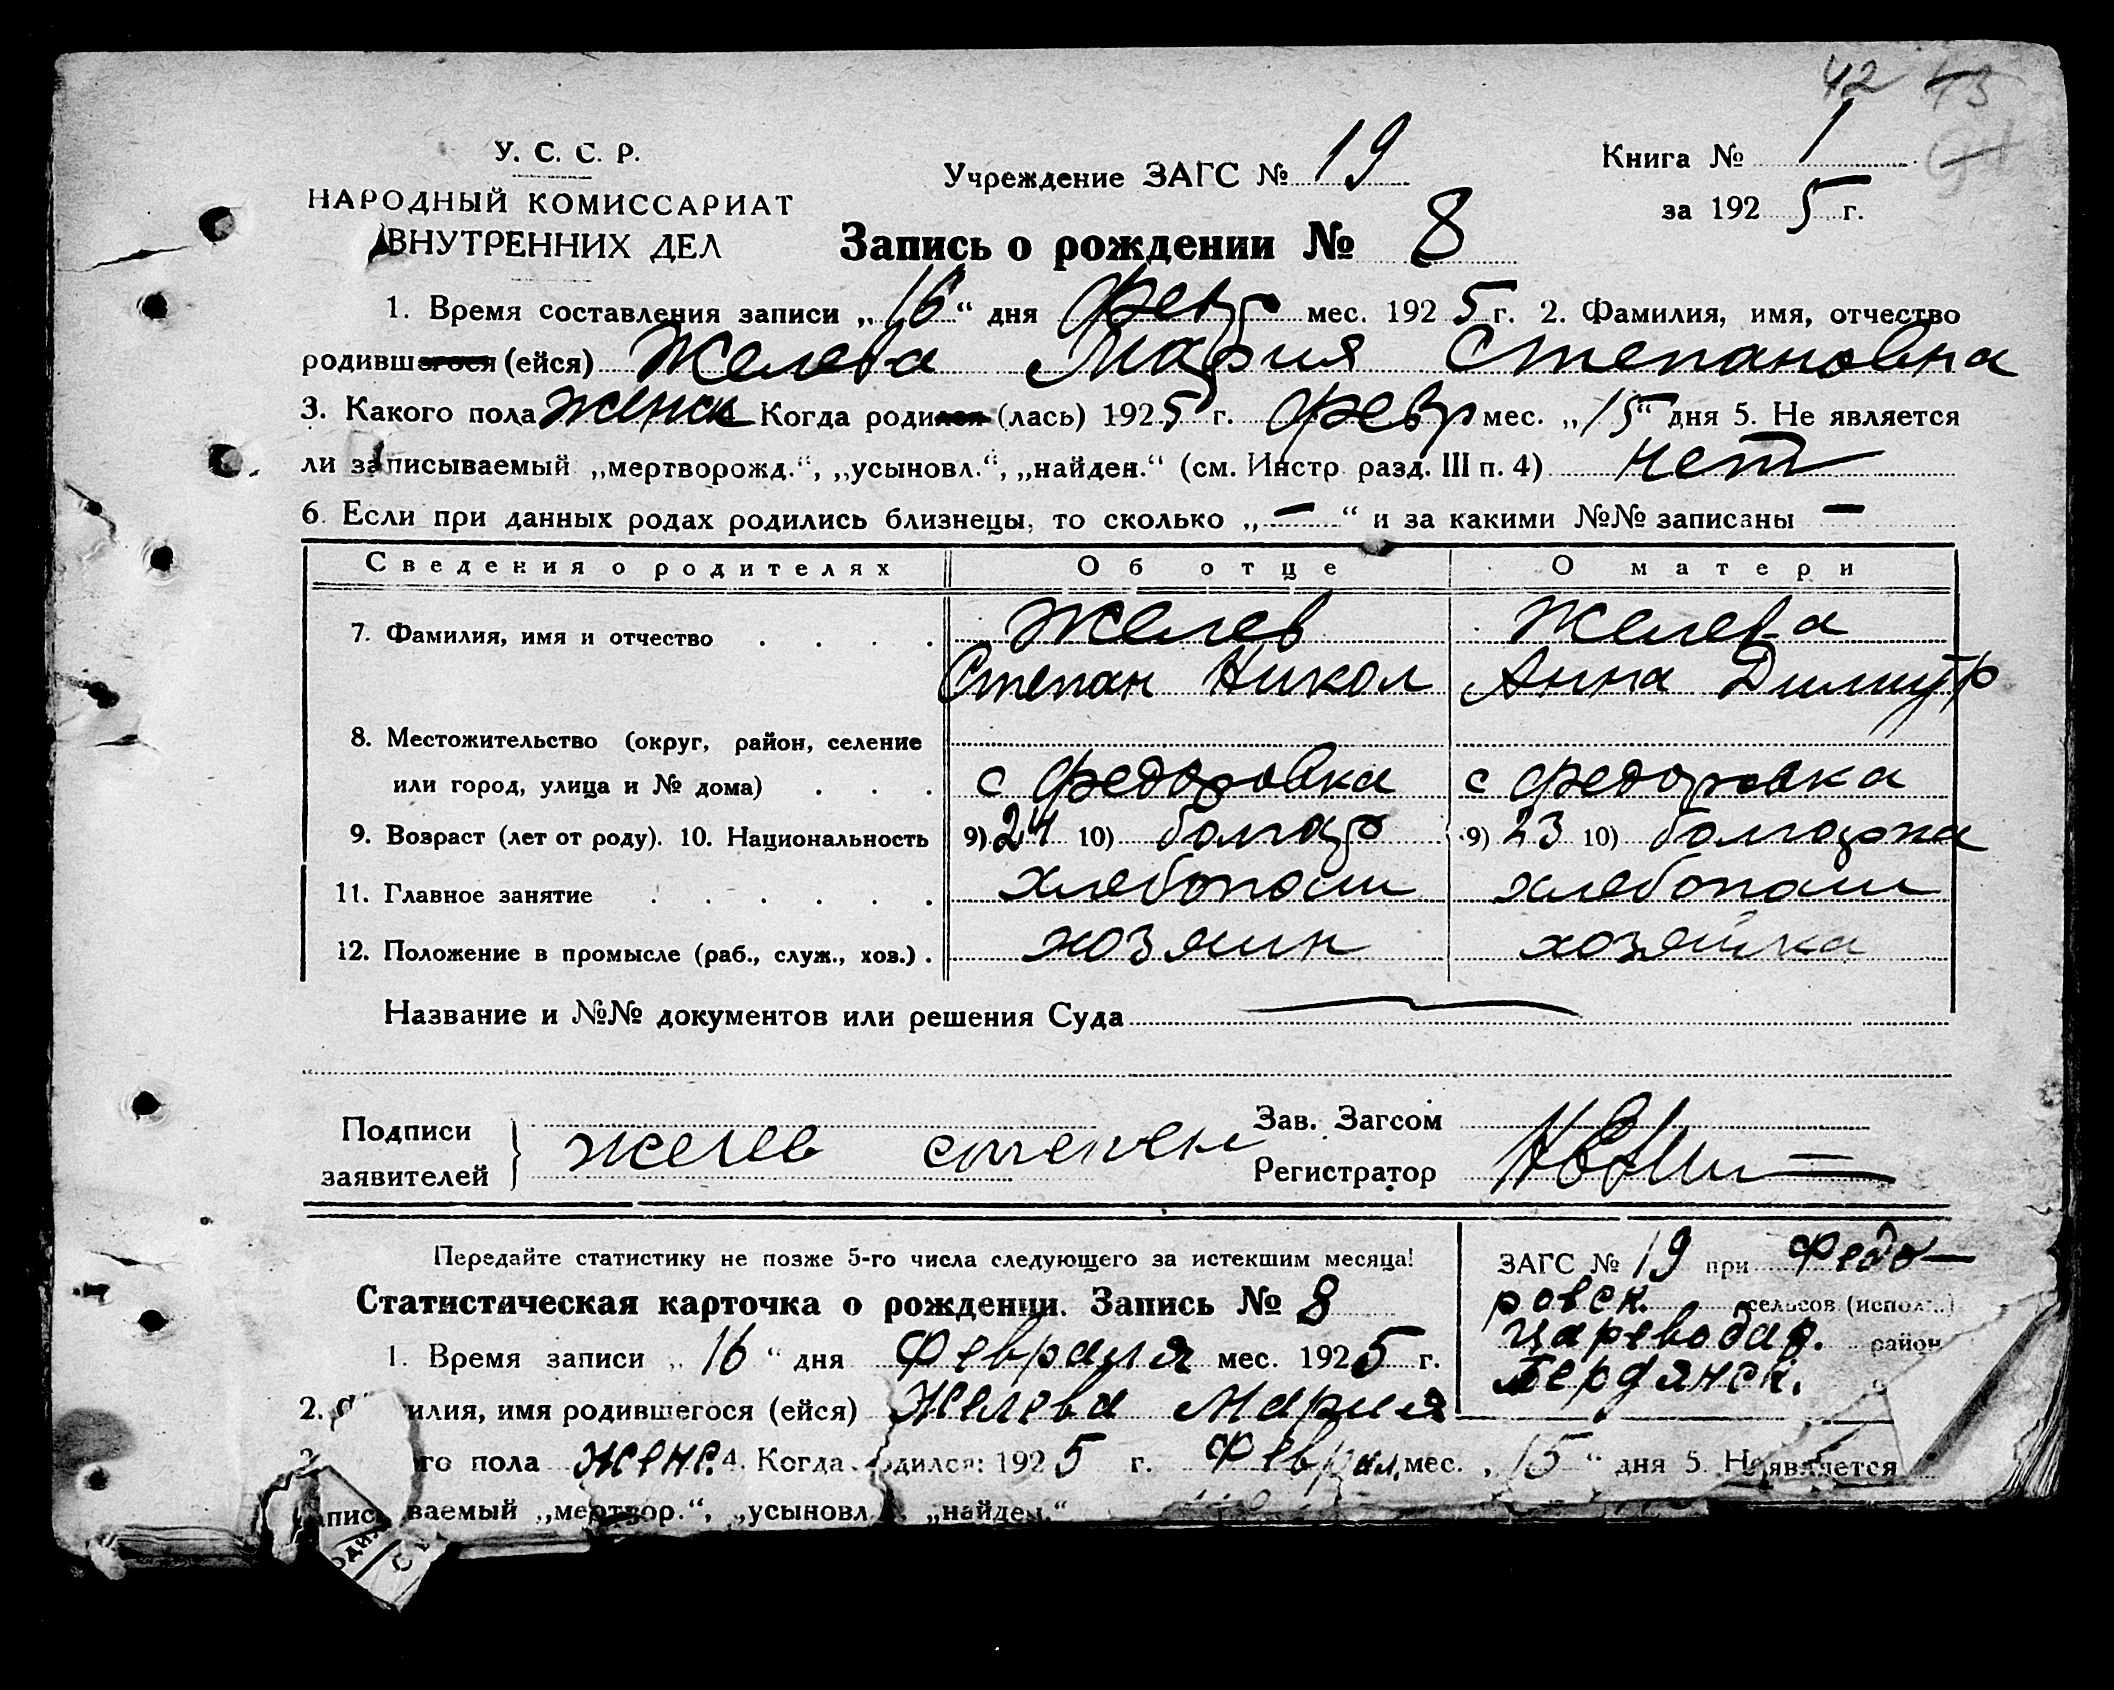 42 43
У. С. С. Р.
НАРОДНЫЙ КОМИССАРИАТ
ВНУТРЕННИХ ДЕЛ
Учреждение ЗАГС № 19
Книга № 1
за 1925 г.
Запись о рождении № 8
1. Время составления записи „16“ дня февр мес. 1925 г. 2. Фамилия, имя, отчество
родившегося (ейся) Желева Мария Степановна
3. Какого пола женск 4. Когда родился (лась) 1925 г. февр мес. „15“ дня 5. Не является
ли записываемый „мертворожд.“, „усыновл.“, „найден.“ (см. Инстр. разд. III п. 4) нет
6. Если при данных родах родились близнецы, то сколько „—“ и за какими №№ записаны —
Сведения о родителях Об отце О матери
7. Фамилия, имя и отчество . . . . Желев Желева
Степан Никол Анна Димитр
8. Местожительство (округ, район, селение
или город, улица и № дома) . . . с Федоровка с Федоровка
9. Возраст (лет от роду). 10. Национальность 9) 24 10) болгар 9) 23 10) болгарка
11. Главное занятие . . . . . . хлебопаш хлебопаш
12. Положение в промысле (раб., служ., хоз.) . хозяин хозяйка
Название и №№ документов или решения Суда —
Подписи
заявителей } Желев степен
Зав. Загсом
Регистратор
Передайте статистику не позже 5-го числа следующего за истекшим месяца!
Статистическая карточка о рождении. Запись № 8
ЗАГС № 19 при Федо-
ровск. сельсов. (исполк.)
Цареводар. район
Бердянск.
1. Время записи „16“ дня Февраля мес. 1925 г.
2. илия, имя родившегося (ейся) Желева Мария
го пола женс. 4. Когда одился: 1925 г. Феврал. мес. „15“ дня 5. Не является
запис ваемый „мертвор.“, „усыновл „найден.“